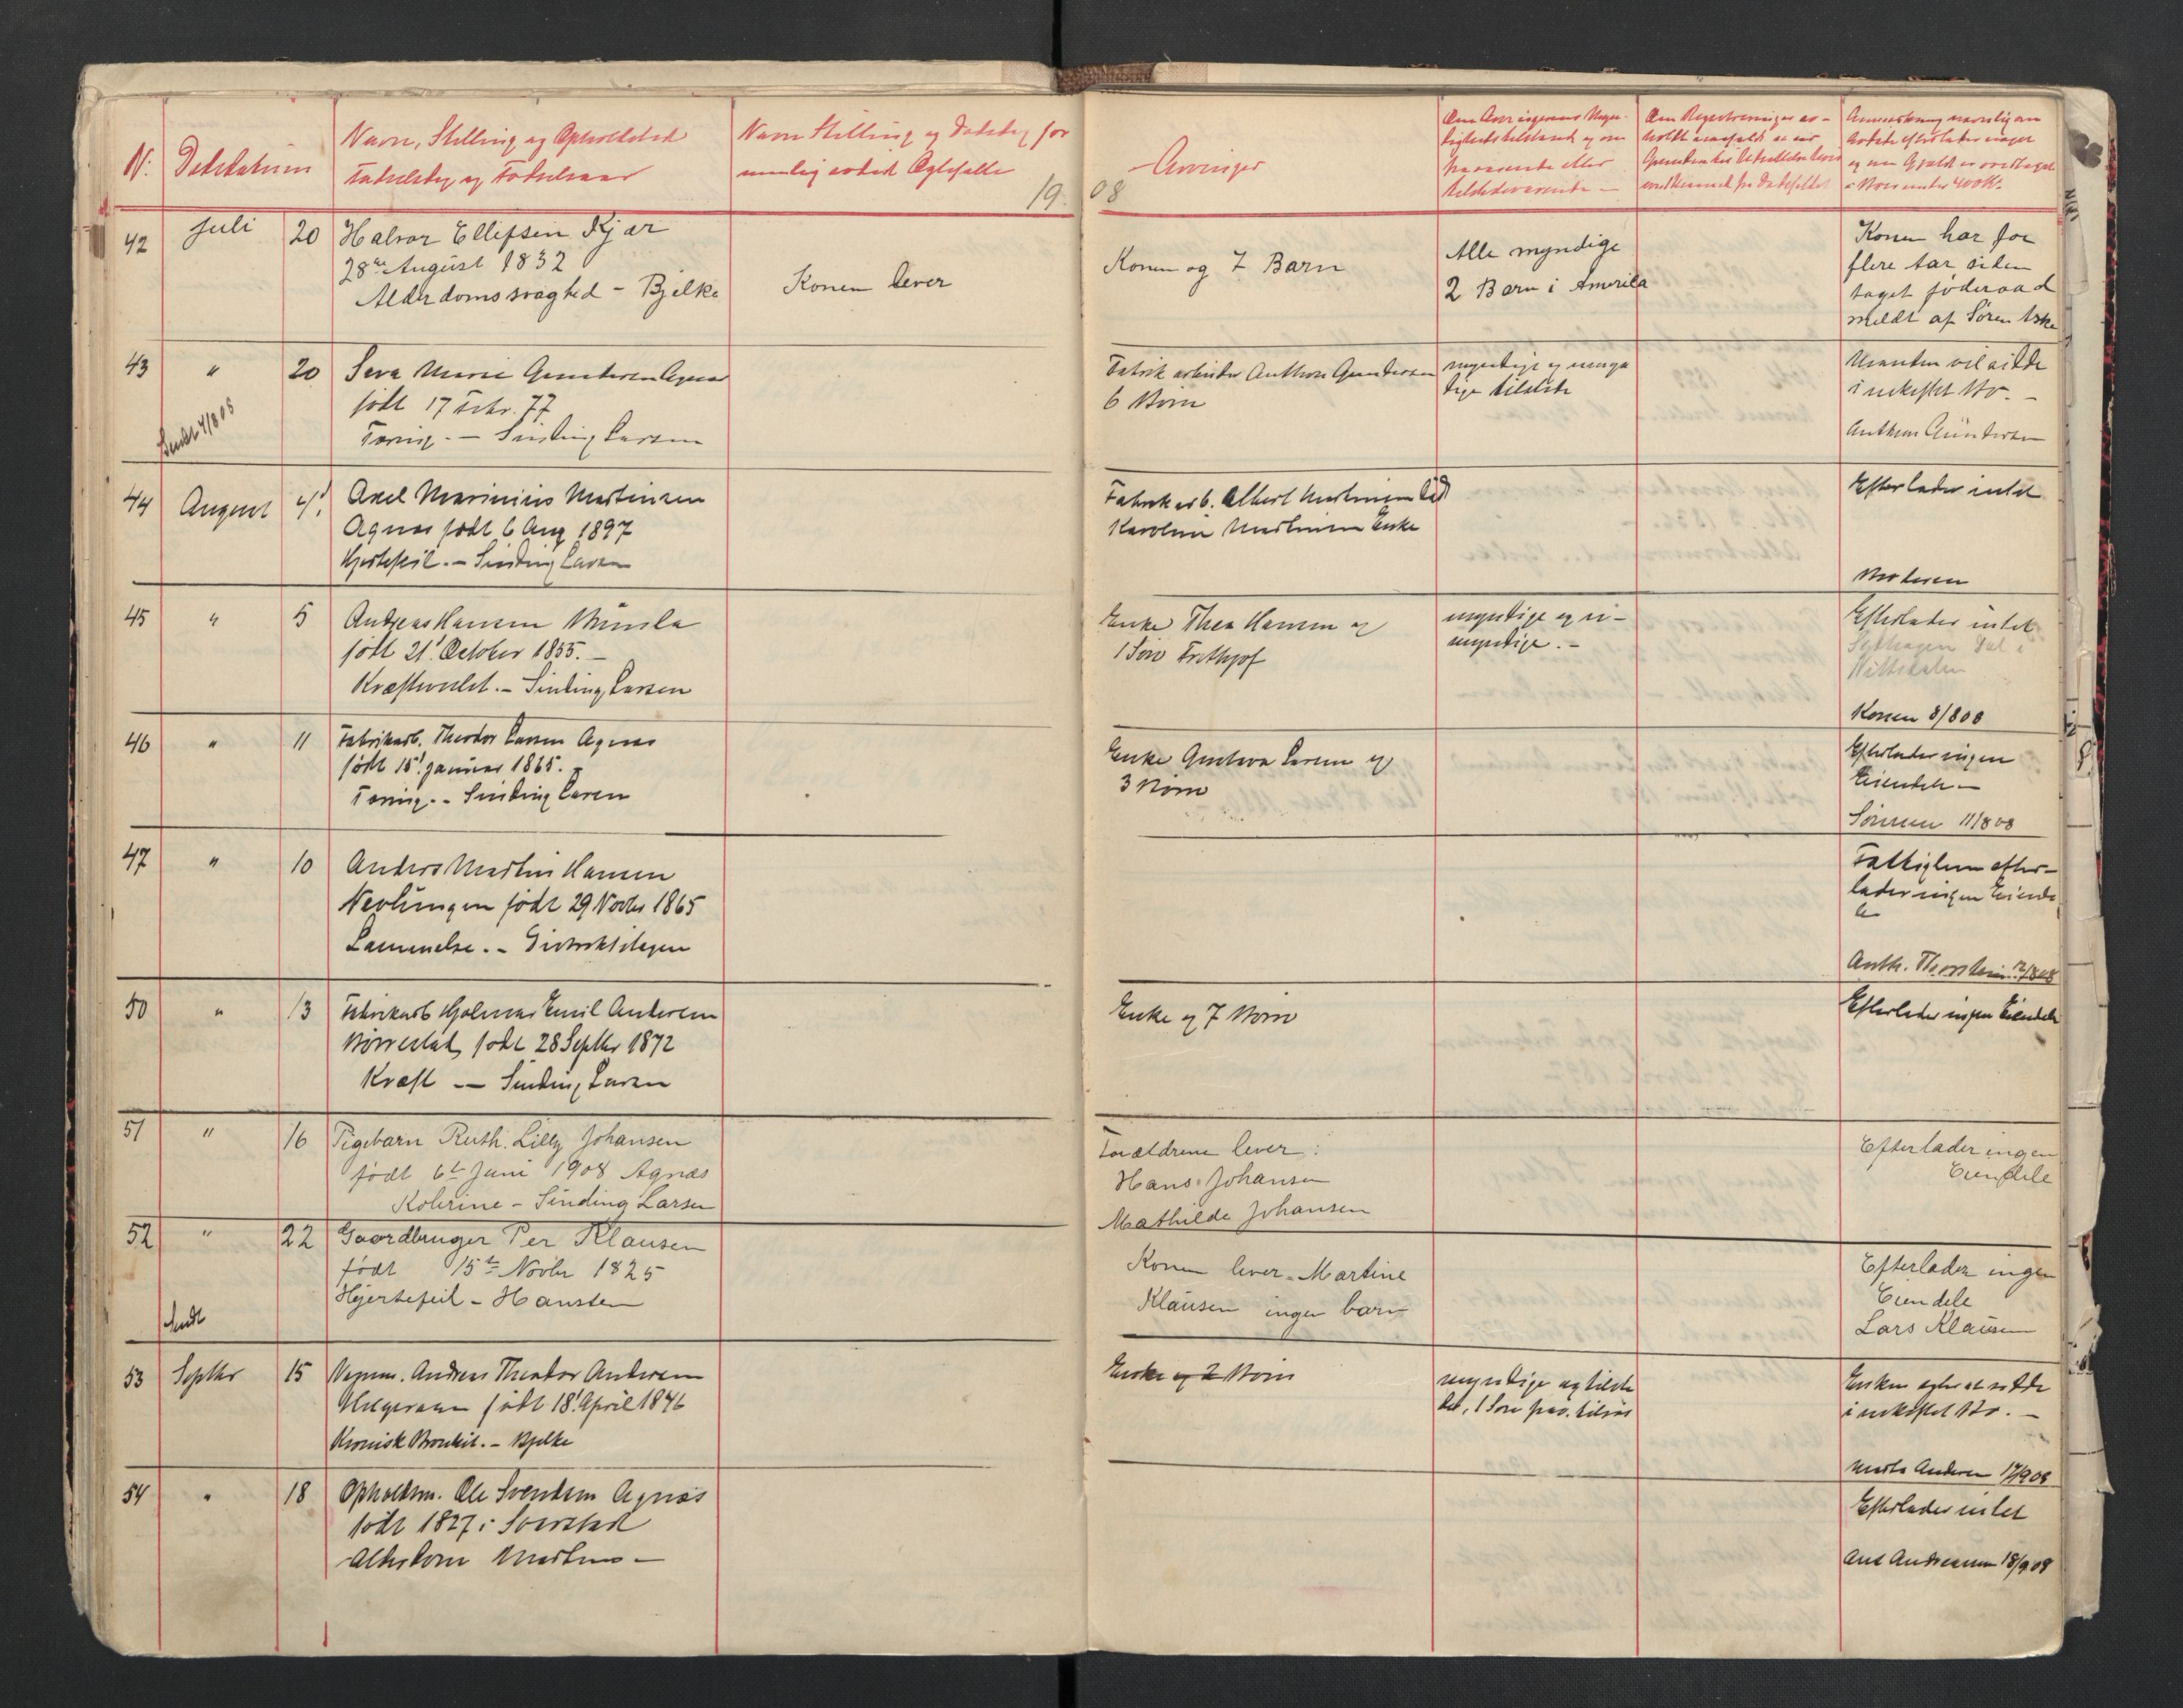 N:
Dødsdatum
Navn, Stilling og Opholdsted
Fødselsdag og Fødselsaar
Navn Stilling og Dødsdag for
mulig avdød Egtefælle
19
08
Arvinger
Om Arvingernes Myn-
dighedstilstand og om
nærværende eller
tilstedeværende –
Om Registreringer
Anmerkning navnlig om
Avdøde efterlader noget
og om Gjæld er overtaget
i Boer under 400 Kr.
42
Juli
20
Halvor Ellefsen Kjær
28de August 1832
Alderdomssvaghed – Bjelke
Konen lever
Konen og 7 Barn
Alle myndige
2 Barn i Amerika
Konen har for
flere aar siden
taget føderaad
meldt af Søren
43
"
20
Sendt 4/8 08
Marie Gundersen Agnæs
født 17 Febr. 77
Tæring. – Sinding Larsen
Fabrikarbeider Anthon Gundersen
6 Børn
myndige og umyn
dige tilstede
Manden vil sidde
i uskiftet Bo. –
Anthon Gundersen
44
August
4'
Axel Marinius Martinsen
Agnæs født 6 Aug 1897
Hjertefeil. – Sinding Larsen
Fabrikarb. Albert Martinsen død
Karoline Martinsen Enke
Efterlader intet
Moderen
45
"
5
Andreas Hansen
født 21' October 1855. –
Kræftsvulst. – Sinding Larsen
Enke Thea Hansen og
1 Søn Frithjof
myndige og u-
myndige. –
Efterlader intet
Konen 8/8 08
46
"
11
Fabrikarb. Theodor Larsen Agnæs
født 15' Januar 1865. –
Tæring. – Sinding Larsen
Enke Gustava Larsen og
3 Børn
Efterlader ingen
Eiendele –
Sørensen 11/8 08
47
"
10
Anders Martin Hansen
Nevlungen født 29 Novbr 1865
Lammelse. – Distriktslægen
Fattiglem efter-
lader ingen Eiende
le
Anth. Thorsteinsen 12/8 08
50
"
13
Fabrikarb Hjalmar Emil Andersen
født 28 Septbr 1872
Kræft – Sinding Larsen
Enke og 7 Børn
Efterlader ingen Eiendele
51
"
16
Pigebarn Ruth Lilly Johansen
født 6te Juni 1908 Agnæs
Kolerine – Sinding Larsen
Forældrene lever:
Hans Johansen
Mathilde Johansen
Efterlader ingen
Eiendele
52
"
22
Sendt
Gaardbruger Per Klausen
født 15te Novbr 1825
Hjertefeil – Hansteen
Konen lever – Martine
Klausen ingen barn
Efterlader ingen
Eiendele
Lars Klausen
53
Septbr
15
Andreas Theodor Andersen
født 18' April 1846
Kronisk Bronkit. – Bjelke
Enke og 2 Børn
myndige og tilste
det, 1 Søn
Enken agter at sidde
i uskiftet Bo. –
Andersen 17/9 08
54
"
18
Opholdsm. Ole Svendsen Agnæs
født 1827 i
Alderdom
Efterlader intet
And Andreassen 18/9 08